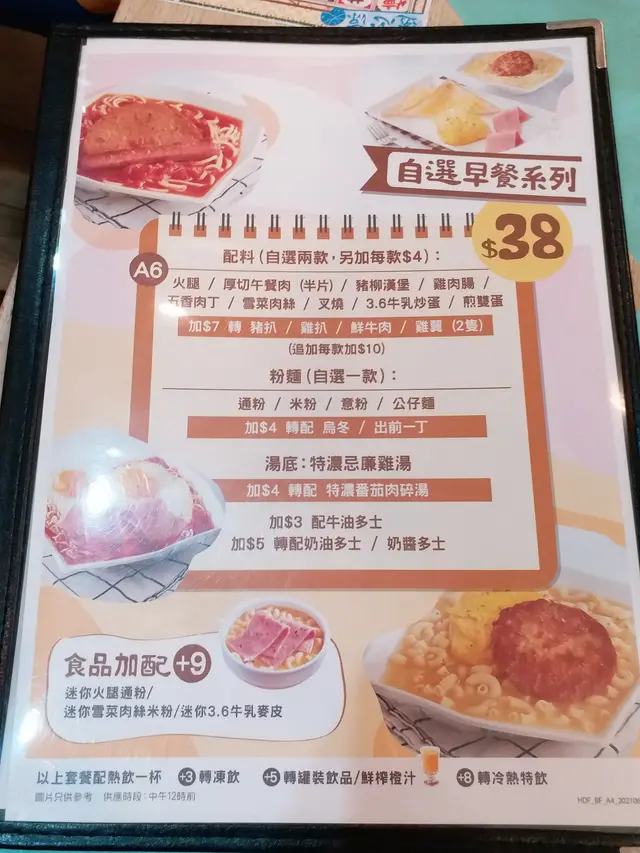 自選早餐系列
$38
A6
配料(自選兩款,另加每款$4):
火腿 / 厚切午餐肉 (半片) / 豬柳漢堡 / 雞肉腸 /
五香肉丁 / 雪菜肉絲 / 叉燒 / 3.6牛乳炒蛋 / 煎雙蛋
加$7 轉 豬扒 / 雞扒 / 鮮牛肉 / 雞翼 (2隻)
(追加每款加$10)
粉麵(自選一款):
通粉 / 米粉 / 意粉 / 公仔麵
加$4 轉配 烏冬 / 出前一丁
湯底:特濃忌廉雞湯
加$4 轉配 特濃番茄肉碎湯
加$3 配牛油多士
加$5 轉配奶油多士 / 奶醬多士
食品加配 +9
迷你火腿通粉/
迷你雪菜肉絲米粉/迷你3.6牛乳麥皮
以上套餐配熱飲一杯 +3 轉凍飲 +5 轉罐裝飲品/鮮榨橙汁 +8 轉冷熱特飲
圖片只供參考 供應時段:中午12時前
HDF_BF_A4_202106